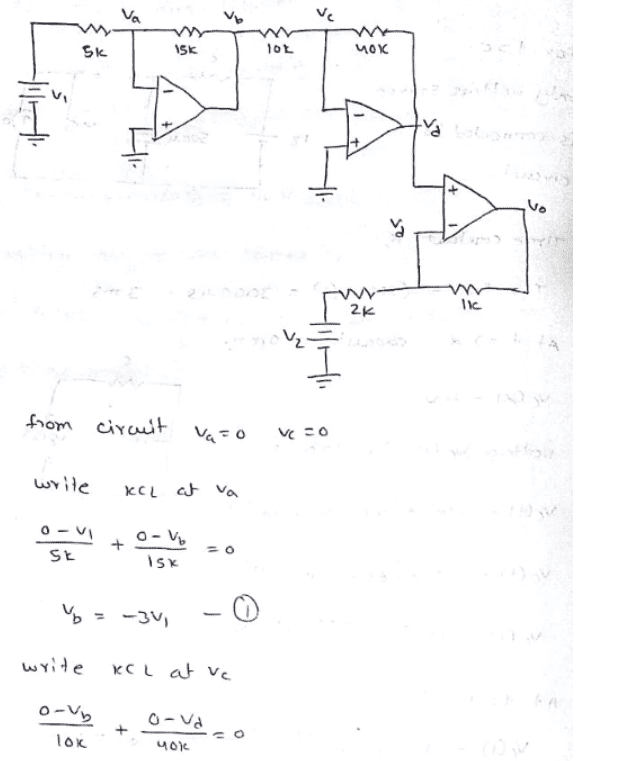 Va Vb Vc
5K 15K 10K 40K
V1
- + - +
Vd
+ Vo
Vd -
2K 1K
V2
from circuit Va = 0 Vc = 0
write KCL at Va
0 - V1 / 5K + 0 - Vb / 15K = 0
Vb = -3V1 - ①
write KCL at Vc
0 - Vb / 10K + 0 - Vd / 40K = 0